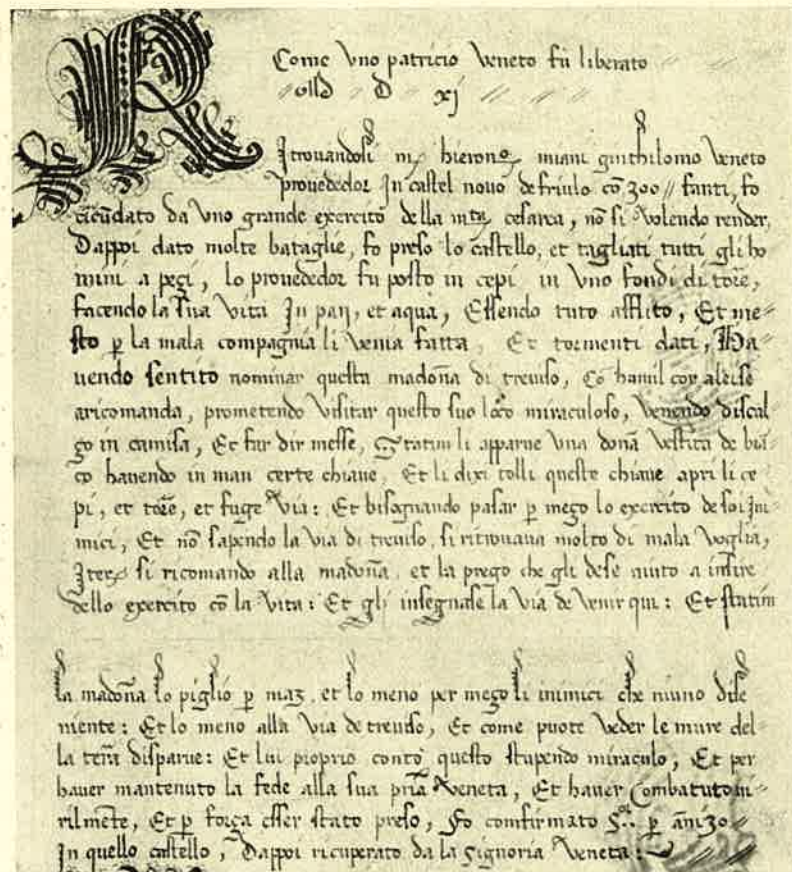 Come Uno patricio Veneto fu liberato
MD D xj
Ritrovandosi mẓ hieronỵ miani ginthilomo Veneto
provededor In castel novo de friulo cõ 300 // fanti, fo
circũdato da Uno grande exercito della mtà cesarea, nõ si Volendo render,
Dappoi dato molte bataglie, fo preso lo castello, et tagliati tutti gli ho
mini a pezi, lo provededor fu posto in cepi in Uno fondi di torẽ,
facendo la sua Vita In pan, et aqua, Essendo tuto afflito, Et me //
sto p̱ la mala compagnia li Venia fatta, Et tormenti dati, Ha
vendo sentito nominar questa madoña di treviso, Cõ humil cor aleise
aricomanda, prometendo Visitar questo suo loco miraculoso, Venendo discal
zo in camisa, Et far dir messe, statim li apparve Una dona Vestita de biã
co havendo in man certe chiave, Et li dixi tolli queste chiave apri li ce
pi, et torẽ, et fuge Via: Et bisognando pasar p̱ mezo lo excercito de soi Ini
mici, Et nõ sapendo la via di treviso, si ritrovava molto di mala Voglia,
Iterụ si ricomando alla madoña, et la prego che gli dese aiuto a insire
dello exercito cõ la Vita: Et gli insegnase la Via de Venir qui: Et statim
la madoña lo piglio p̱ man, et lo meno per mezo li inimici che niuno dise
niente: Et lo meno alla Via de treviso, Et come puote Veder le mure del
la terã disparue: Et lui proprio contò questo stupendo miraculo, Et per
haver mantenuto la fede alla sua prĩa Veneta, Et haver Combatuto vi //
rilmẽte, Et p̱ forza esser stato preso, Fo comfirmato p̱ ani 30 //
In quello castello, Dappoi ricuperato da la Signoria Veneta: